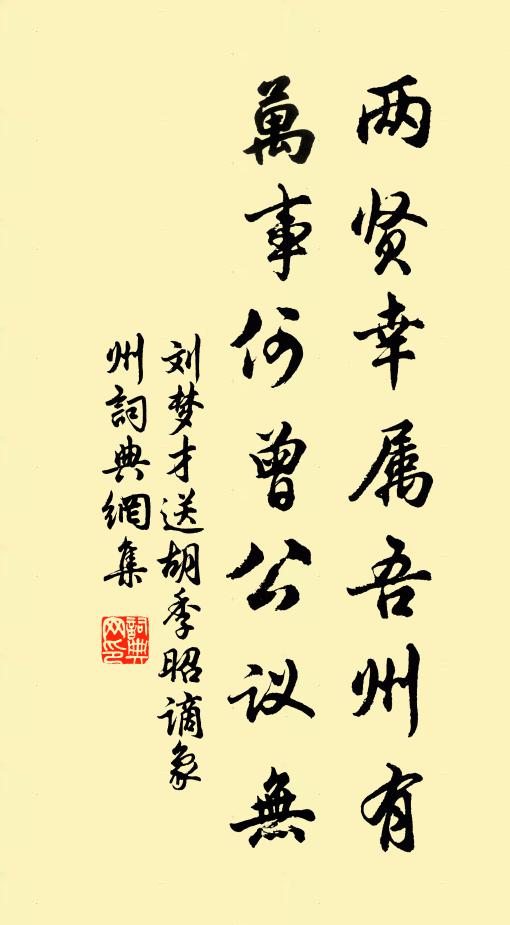 两贤幸属吾州有
萬事何曾公议無
刘梦才送胡季昭谪象
州詞典網集
詞典
网印